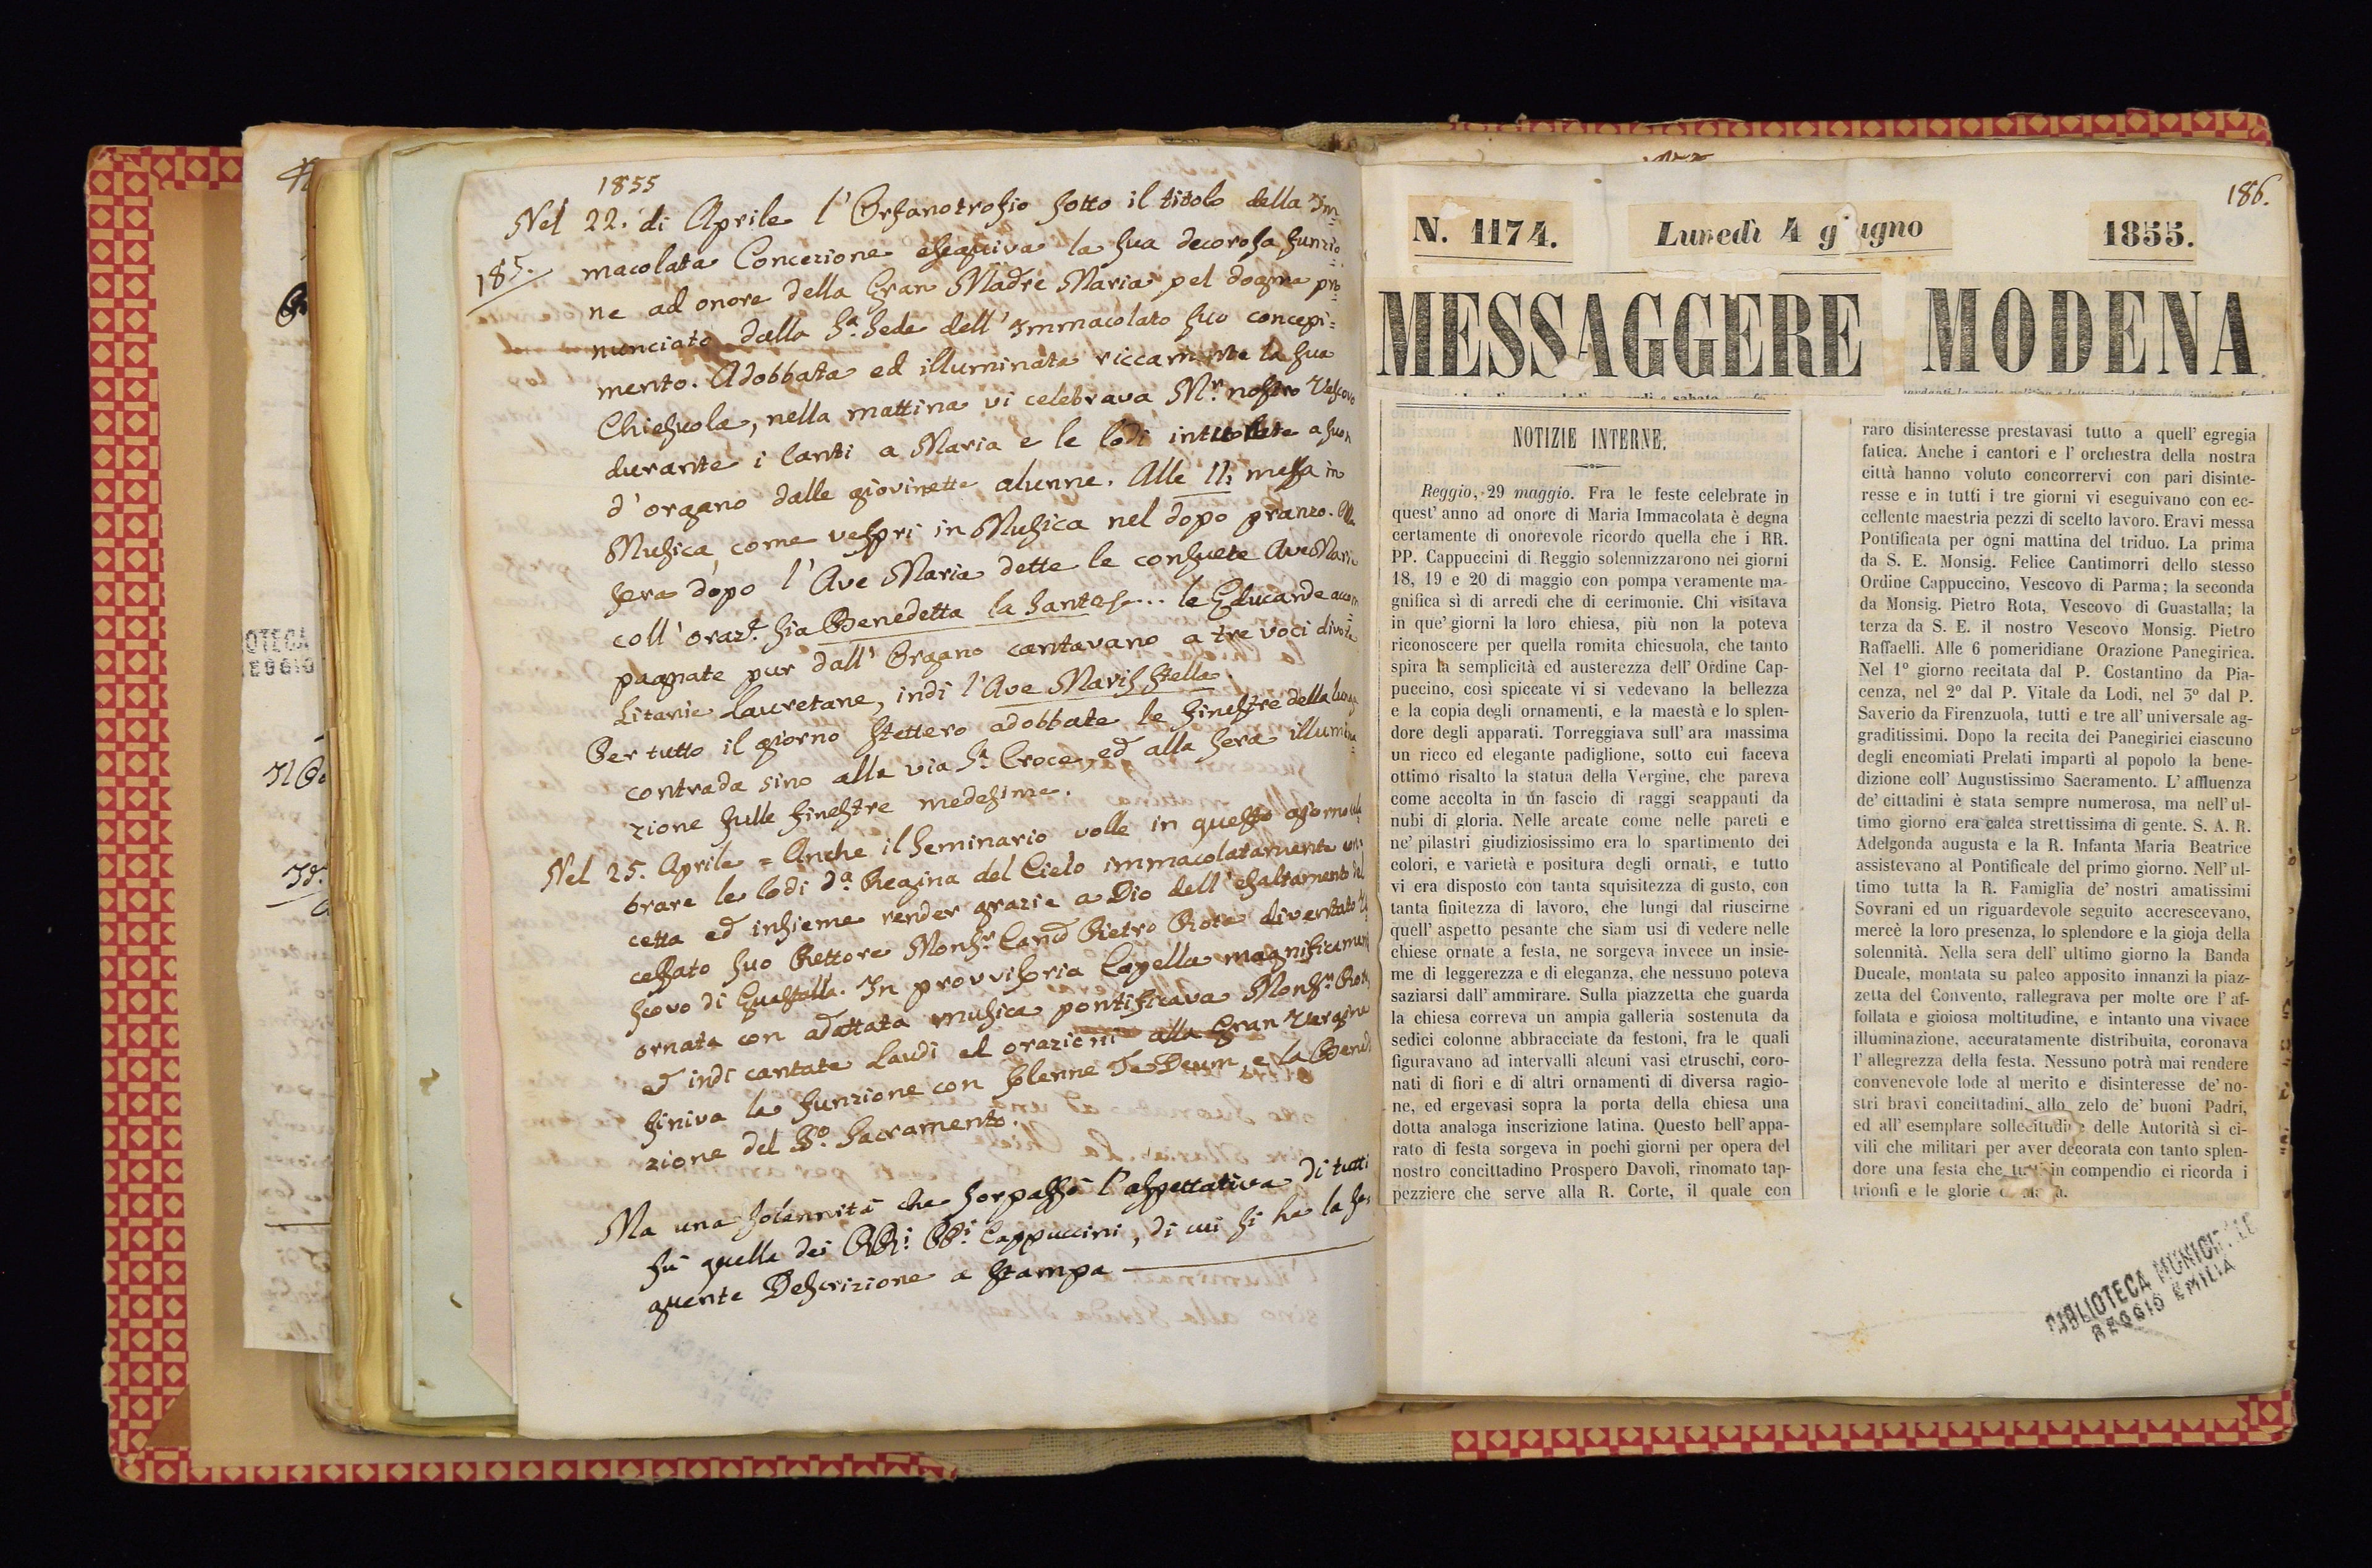 1855
185.
Nel 22. di Aprile l'Orfanotrofio sotto il titolo della Im=
macolata Concezione eseguiva la sua decorosa funzio=
ne ad onore della Gran Madre Maria pel dogma pro=
nunciato dalla S.a Sede dell'Immacolato suo concepi=
mento. Adobbata ed illuminata riccamente la sua
Chiesuola, nella mattina vi celebrava Mr. nostro Vescovo
durante i Canti a Maria e le lodi a suon
d'organo dalle giovinette alunne. Alle 11, messa in
Musica, come vespri in Musica nel dopo pranzo. Alla
sera dopo l'Ave Maria dette le consuete Ave Maria
coll'oraz.e sia Benedetta la Santa se... le Educande accom=
pagnate pur dall'Organo cantavano a tre voci divote
Litanie Lauretane, indi l'Ave Maris Stella.
Per tutto il giorno stettero adobbate le finestre della lunga
contrada sino alla via S.a Croce, ed alla sera illumina=
zione sulle finestre medesime.
Nel 25. Aprile = Anche il Seminario volle in questo giorno cele
brare le lodi d.a Regina del Cielo immacolatamente con
cetta ed insieme render grazie a Dio dell'esaltamento del
cessato suo Rettore Monsr. Cano Pietro Rota diventato Ve
scovo di Guastalla. In provvisoria Capella magnificamente
ornata con adattata musica pontificava Monsr. Rota,
ed indi cantate Laudi ed orazioni alla Gran Vergine
finiva la funzione con solenne Te Deum, e la Benedi
zione del S.o Sacramento.
Ma una solennità che sorpassò l'aspettativa di tutti
fù quella dei RR.i PP.i Cappuccini, di cui si ha la se=
guente Descrizione a stampa
186.
N. 1174. Lunedì 4 giugno 1855.
MESSAGGERE MODENA
NOTIZIE INTERNE.
Reggio, 29 maggio. Fra le feste celebrate in
quest'anno ad onore di Maria Immacolata è degna
certamente di onorevole ricordo quella che i RR.
PP. Cappuccini di Reggio solennizzarono nei giorni
18, 19 e 20 di maggio con pompa veramente ma-
gnifica sì di arredi che di cerimonie. Chi visitava
in que' giorni la loro chiesa, più non la poteva
riconoscere per quella romita chiesuola, che tanto
spira la semplicità ed austerezza dell'Ordine Cap-
puccino, così spiccate vi si vedevano la bellezza
e la copia degli ornamenti, e la maestà e lo splen-
dore degli apparati. Torreggiava sull'ara massima
un ricco ed elegante padiglione, sotto cui faceva
ottimo risalto la statua della Vergine, che pareva
come accolta in un fascio di raggi scappanti da
nubi di gloria. Nelle arcate come nelle pareti e
ne' pilastri giudiziosissimo era lo spartimento dei
colori, e varietà e positura degli ornati, e tutto
vi era disposto con tanta squisitezza di gusto, con
tanta finitezza di lavoro, che lungi dal riuscirne
quell'aspetto pesante che siam usi di vedere nelle
chiese ornate a festa, ne sorgeva invece un insie-
me di leggerezza e di eleganza, che nessuno poteva
saziarsi dall'ammirare. Sulla piazzetta che guarda
la chiesa correva un ampia galleria sostenuta da
sedici colonne abbracciate da festoni, fra le quali
figuravano ad intervalli alcuni vasi etruschi, coro-
nati di fiori e di altri ornamenti di diversa ragio-
ne, ed ergevasi sopra la porta della chiesa una
dotta analoga inscrizione latina. Questo bell'appa-
rato di festa sorgeva in pochi giorni per opera del
nostro concittadino Prospero Davoli, rinomato tap-
pezziere che serve alla R. Corte, il quale con
raro disinteresse prestavasi tutto a quell'egregia
fatica. Anche i cantori e l'orchestra della nostra
città hanno voluto concorrervi con pari disinte-
resse e in tutti i tre giorni vi eseguivano con ec-
cellente maestria pezzi di scelto lavoro. Eravi messa
Pontificata per ogni mattina del triduo. La prima
da S. E. Monsig. Felice Cantimorri dello stesso
Ordine Cappuccino, Vescovo di Parma; la seconda
da Monsig. Pietro Rota, Vescovo di Guastalla; la
terza da S. E. il nostro Vescovo Monsig. Pietro
Raffaelli. Alle 6 pomeridiane Orazione Panegirica.
Nel 1º giorno recitata dal P. Costantino da Pia-
cenza, nel 2º dal P. Vitale da Lodi, nel 3º dal P.
Saverio da Firenzuola, tutti e tre all'universale ag-
graditissimi. Dopo la recita dei Panegirici ciascuno
degli encomiati Prelati impartì al popolo la bene-
dizione coll'Augustissimo Sacramento. L'affluenza
de' cittadini è stata sempre numerosa, ma nell'ul-
timo giorno era calca strettissima di gente. S. A. R.
Adelgonda augusta e la R. Infanta Maria Beatrice
assistevano al Pontificale del primo giorno. Nell'ul-
timo tutta la R. Famiglia de' nostri amatissimi
Sovrani ed un riguardevole seguito accrescevano,
mercè la loro presenza, lo splendore e la gioja della
solennità. Nella sera dell'ultimo giorno la Banda
Ducale, montata su palco apposito innanzi la piaz-
zetta del Convento, rallegrava per molte ore l'af-
follata e gioiosa moltitudine, e intanto una vivace
illuminazione, accuratamente distribuita, coronava
l'allegrezza della festa. Nessuno potrà mai rendere
convenevole lode al merito e disinteresse de' no-
stri bravi concittadini, allo zelo de' buoni Padri,
ed all'esemplare sollecitudine delle Autorità sì ci-
vili che militari per aver decorata con tanto splen-
dore una festa che in compendio ci ricorda i
trionfi e le glorie
BIBLIOTECA MUNICIPALE
REGGIO EMILIA